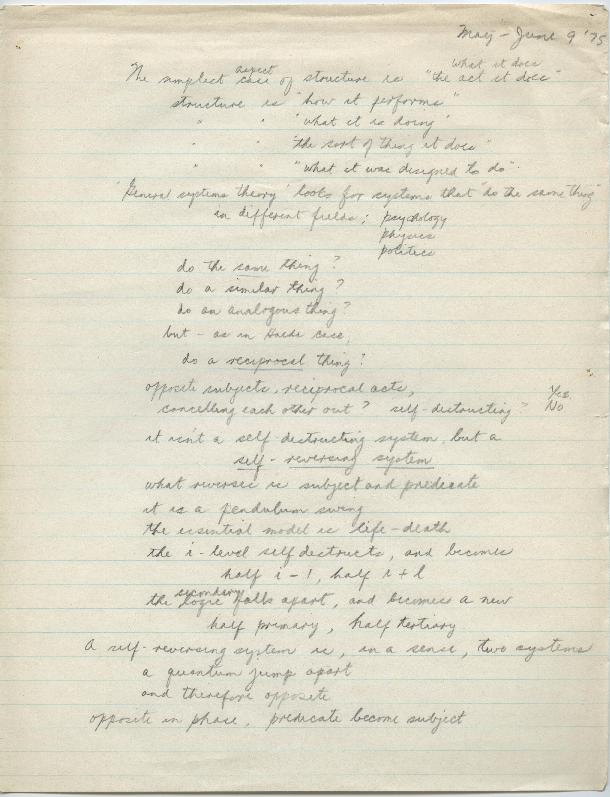 May - June 9 '75
what it does
aspect
The simplest case of structure is "the act it does"
structure is "how it performs"
" " "what it is doing"
" " "the sort of thing it does"
" " "what it was designed to do".
"General systems theory" looks for systems that "do the same thing"
in different fields; psychology
physics
politics
do the same thing?
do a similar thing?
do an analogous thing?
but - as in case,
do a reciprocal thing?
opposite subjects, reciprocal acts, Yes.
cancelling each other out? self-destructing? No
it isn't a self destructing system, but a
self-reversing system
what reverses is subject and predicate
it is a pendulum swing
the essential model is life-death
the i-level self destructs, and becomes
half i-1, half i+1
secondary
the logic falls apart, and becomes a new
half primary, half tertiary
A self-reversing system is, in a sense, two systems
a quantum jump apart
and therefore opposite
opposite in phase, predicate become subject